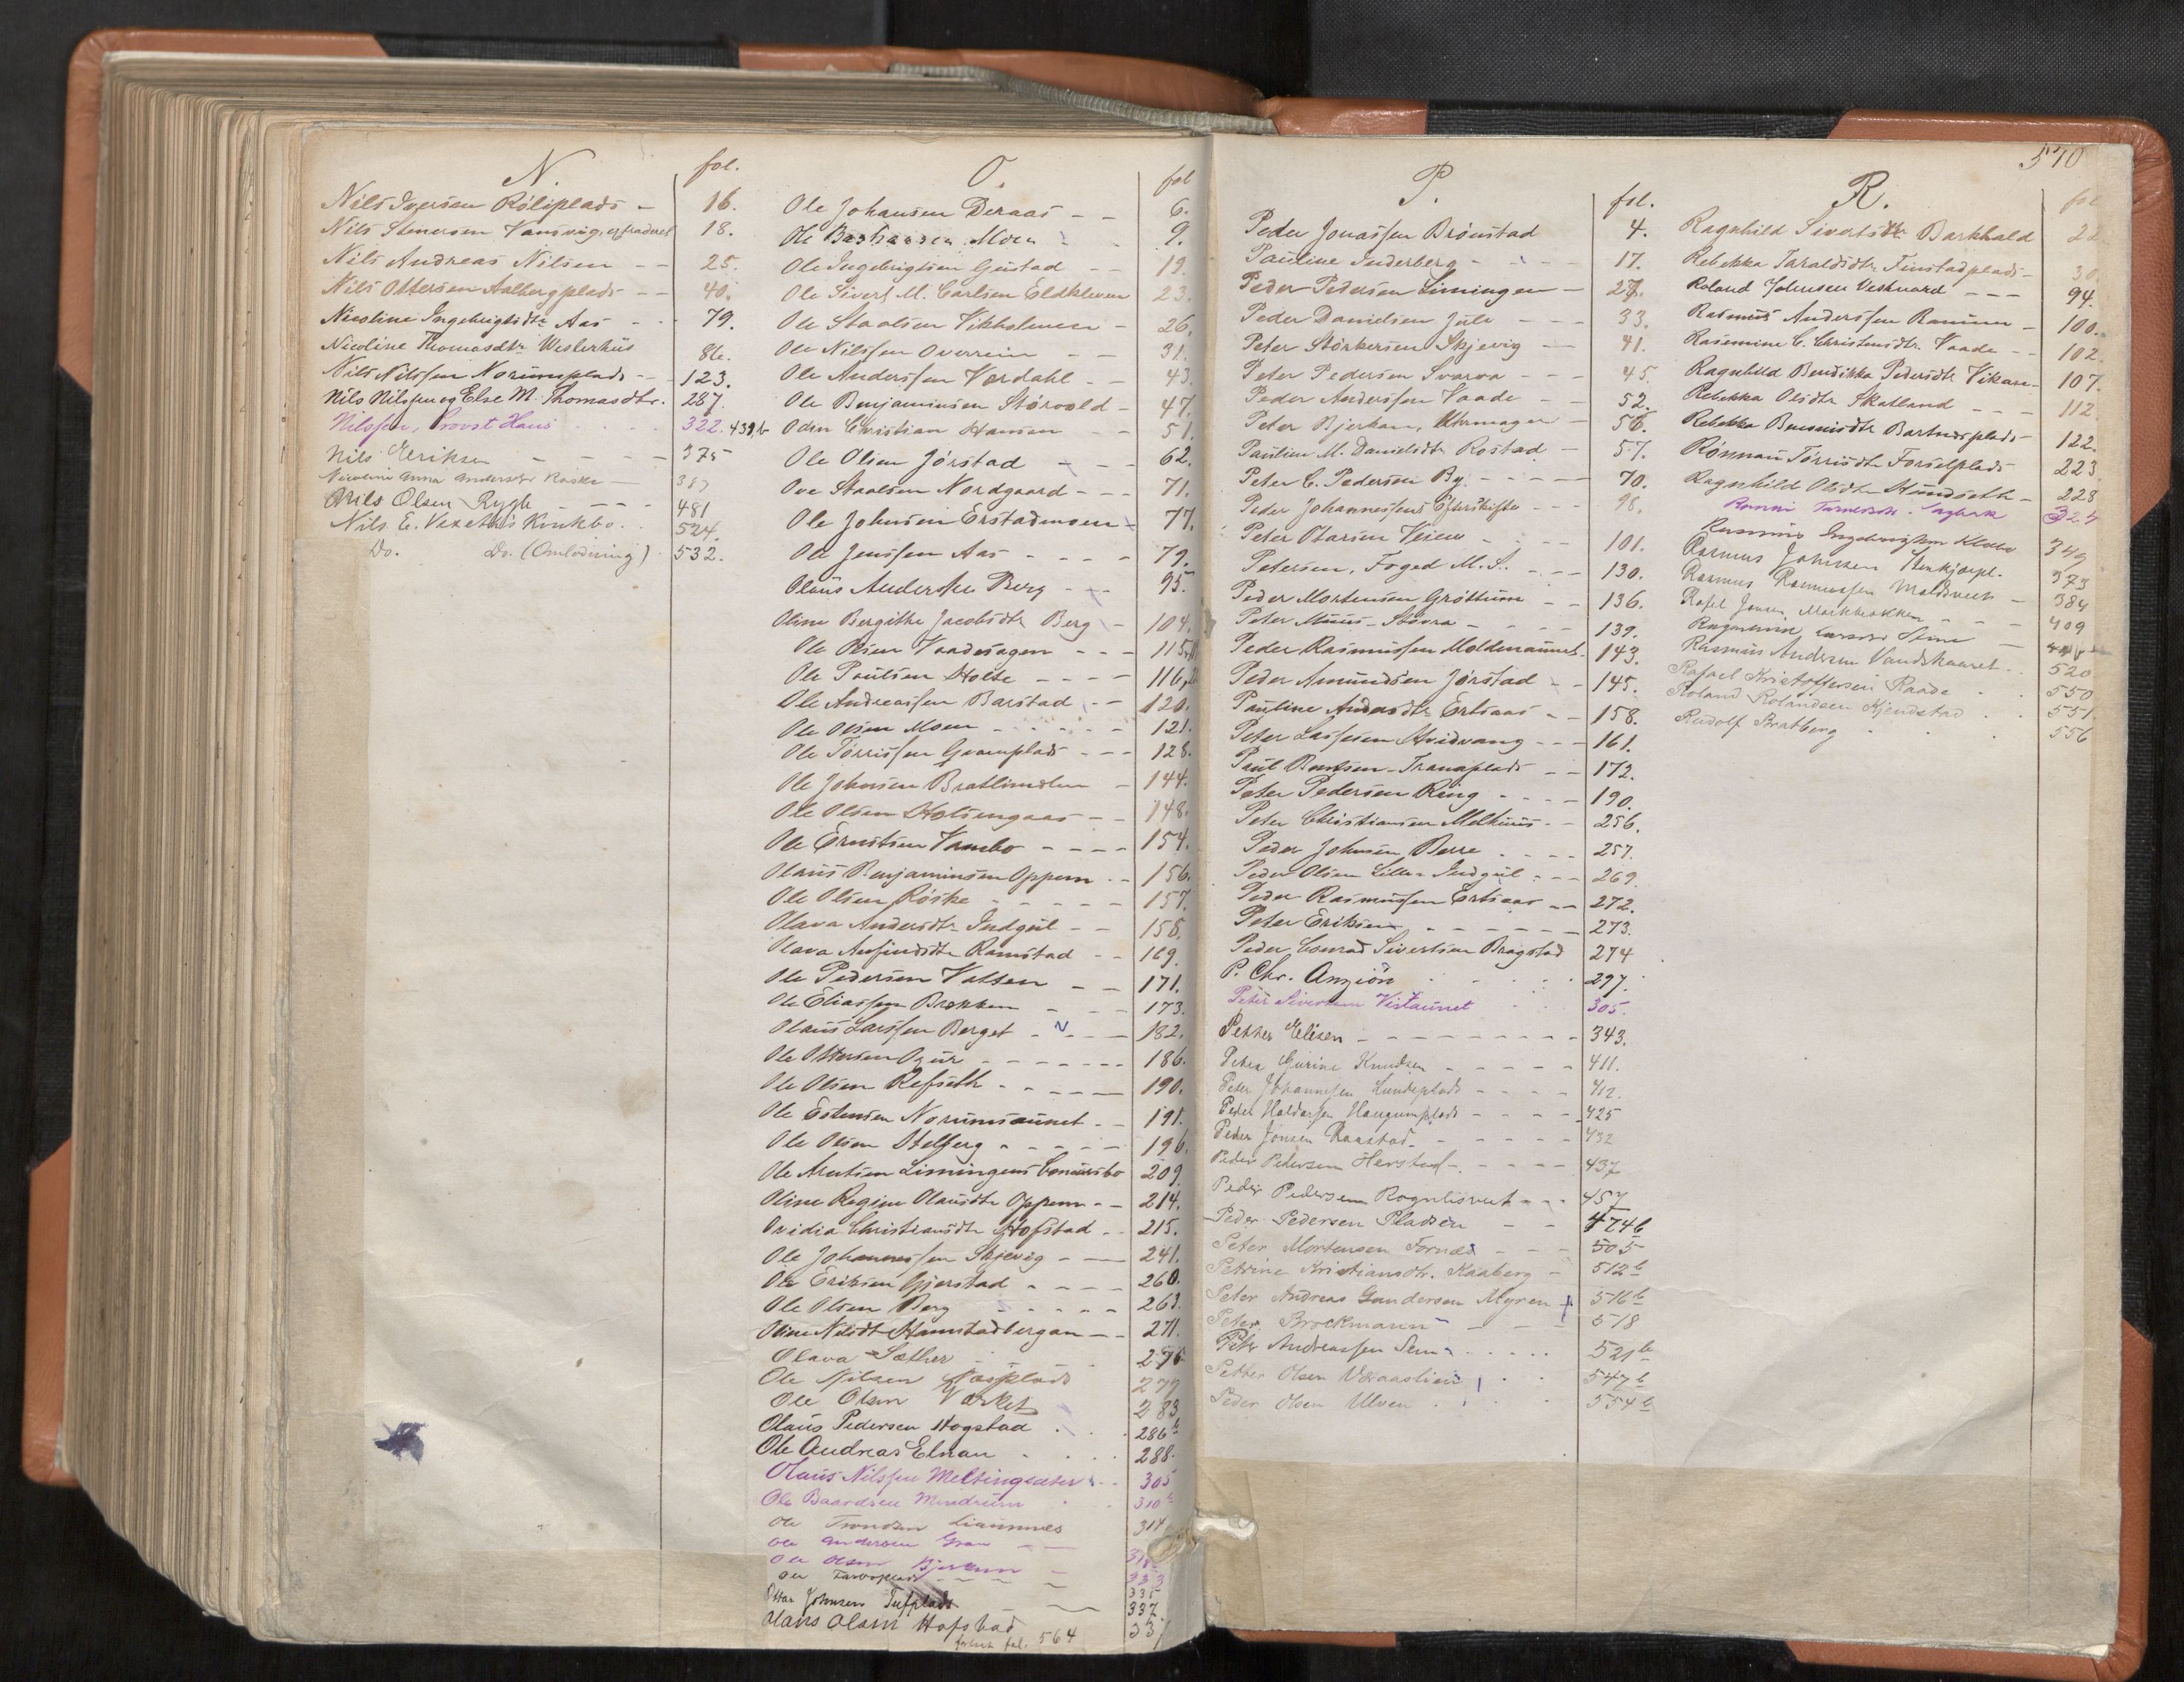 N. fol.
Nils Iversen Röliplads - 16.
Nils Stenersen Vansvig, 18.
Nils Andreas Nilsen - - 25.
Nils Ottersen Aalbergplads - - 40.
Nicoline Ingebrigtsdtr Aas - - 79.
Nicoline Thomasdtr Westerhus 86.
Nils Nilssen Norumplads - - 123.
Nils Nilssen og Else M. Thomasdtr. 287.
Nilssen, Provst Hans 322. 439b
Nils Eriksen - - - - 375
Anna Andersdtr Röske - 387
Nils Olsen Rygh - - - 481
Nils E. Vexethös Konkbo. 524.
Do. Do. (Omlodning) 532.
O. fol
Ole Johansen Deraas - - 6.
Ole Moen 9.
Ole Ingebrigtsen Gustad - - 19.
Ole Sivert M. Carlsen Eldkleven 23.
Ole Staalsen Vikholmen - 26.
Ole Nilssen Overrein - - 31.
Ole Anderssen Verdahl - - 43.
Ole Benjaminsen Störvold - 47.
Oden Christian Hansen - - 51.
Ole Olsen Jörstad - - - 62.
Ove Staalsen Nordgaard - - - 71.
Ole Johnsen Erstadmoen - 77.
Ole Jenssen Aas - - - - 79.
Olaus Anderssen Berg - - - 95.
Oline Bergithe Jacobsdtr Berg - 104.
Ole Olsen Vaadesagen - - - 115.
Ole Paulsen Holte - - - - 116,
Ole Andreassen Barstad - - 120.
Ole Olsen Moen - - - - - 121.
Ole Törrissen Gramplads - - - 128.
Ole Johnsen Bratlimolen - 144.
Ole Olsen Holsengaas - - 148.
Ole Erntsen Vambo - - - - 154.
Olaus Benjaminsen Oppem - - 156.
Ole Olsen Röske - - - - - 157.
Olava Andersdtr Indgul - - 158.
Olava Arfindsdtr Ramstad - - 169.
Ole Pedersen Vatten - - 171.
Ole Eliassen Brekken - - - 173.
Olaus Larssen Berget - - - 182.
Ole Ottersen Ogur - - - - - - 186.
Ole Olsen Refseth - - - - - 190.
Ole Estensen Norumsaunet - - 191.
Ole Olsen Stelberg - - - - - 196.
Ole Arntsen Limingens Concursbo 209.
Oline Regine Olausdtr Oppem - - 214.
Ovidia Christiansdtr Hofstad - - 215.
Ole Johannessen Skjevig - - 241.
Ole Eriksen Gjerstad - - - - 260.
Ole Olsen Berg - - - - - 263.
Oline Nilsdtr Hamstadbergan - - 271.
Olava Sæther - - 276
Ole Nilsen Næsplads 277
Ole Olsen Værket 283
Olaus Pedersen Hogstad . . 286b
Ole Andreas Elnan . . . 288.
Olaus Nilssen Meltingsæter - - 305
Ole Baardsen Mendrum 310b
Ole Trondsen Liaunnæs 314
Ole Andersen Gran - -
Ole Olsen Bjerkem - 333
335
Ottar Johnsen Tufplads - 337.
Olaus Olsen Hofstad
fol. 564
570
P. fol.
Peder Jonassen Brönstad 4.
Pauline Inderberg - - - 17.
Peder Pedersen Limingen - 27.
Peder Danielsen Jule - - - 33.
Peter Störkersen Skjevig - - 41.
Peter Pedersen Svarva - - - 45.
Peder Anderssen Vaade - - 52.
Peter Bjerkan, Uhrmager - 56.
Pauline M. Danielsdtr Rostad - 57.
Peter C. Pedersen By. - - - - - 70.
Peder Johannessens Efterskifte - - - 98.
Peter Olarsen Veien - - - - 101.
Petersen, Foged M. S. - - - - 130.
Peder Mortensen Gröttum - - 136.
Peter Muus - Störra - - - - 139.
Peder Rasmussen Moldemaunet - 143.
Peder Amundsen Jörstad - - 145.
Pauline Andersdtr Ertsaas - - 158.
Peter Lassesen Hvidvang - - - 161.
Paul Bentsen - Tranaplads - - 172.
Peter Pedersen Ring - - - - 190.
Peter Christiansen Melhuus - - 256.
Peder Johnsen Berre - - - - 257.
Peder Olsen Lille-Indgul - - - 269.
Peder Rasmussen Ertsaas - - 272.
Peter Eriksen - - - - - - 273.
Peder Conrad Sivertsen Bragstad 274
P. Chr. Anziön . . . . 297.
Peter Sivertsen Vistaunet . . 305.
Petter Elisen - - - - - - - - 343.
Petra Gurine Knudsen - - - - - 411.
Peter Johannessen Lundeplads - - - - 412.
Peter Haldorsen Haugumplads - - - - 425
Peder Jonsen Raastad - - - - - - 432
Peder Pedersen Herstad - - - - - 437
Peder Pedersen Rognlisveet - - - 457
Peder Pedersen Pladsen - - 474b
Peter Mortensen Fornæs - - - 505
Petrine Kristiansdtr. Kaaberg - 512b
Peter Andreas Gundersen Myren 516b
Peter Brockmann - - - 518
Peter Andreassen Sem - . . . . . 521b
Petter Olsen Vaaraslien . . 547b
Peder Olsen Ulven . . . . 554b
R. fol
Ragnhild Sivertsdtr Barkhald 22
Rebekka Taraldsdtr Finstadplads - 30.
Roland Johnsen Vestnard - - - 94.
Rasmus Anderssen Ranum - 100.
Rasmine C. Christensdtr. Vaade - - 102.
Ragnhild Bendikka Pedersdtr Vikan - 107.
Rebekka Olsdtr Skatland - - - 112.
Rebekka Bartnesplads - 122.
Rönnau Törrisdtr Forselplads 223
Ragnhild Olsdtr Hundseth - 228
324
Rasmus Ingebrigtsen Kleve 349
Rasmus Johnsen Stenkjærpl. 373
Rasmus Rasmussen Moldsveet - 384
Rafel Jensen Markbækken - - - 409
Rasmus Andersen Vandskaaret. . . 520
Rafael Kristoffersen Raade . . 550
Roland Rolandsen Hjendstad . . 551.
Rudolf Bratberg . . . 556